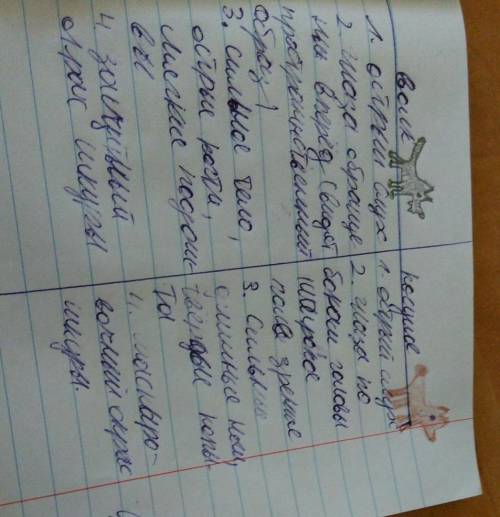 волк
1. острый слух
2. глаза обраще
ны вперёд (видят
пространственный
образ)
3. сильное тело,
острые
мягкие подош-
вы
4. защитный
окрас шкуры
косуля
1. острый
2. глаза по
бокам головы
широкое
поле зрение
3. сильные
ноги,
твёрдые копы-
та
4. маскиро-
вочный окрас
шкуры.